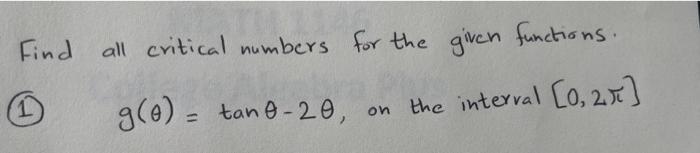 Find all critical numbers for the given functions.
① g(θ) = tan θ - 2θ, on the interval [0, 2π]